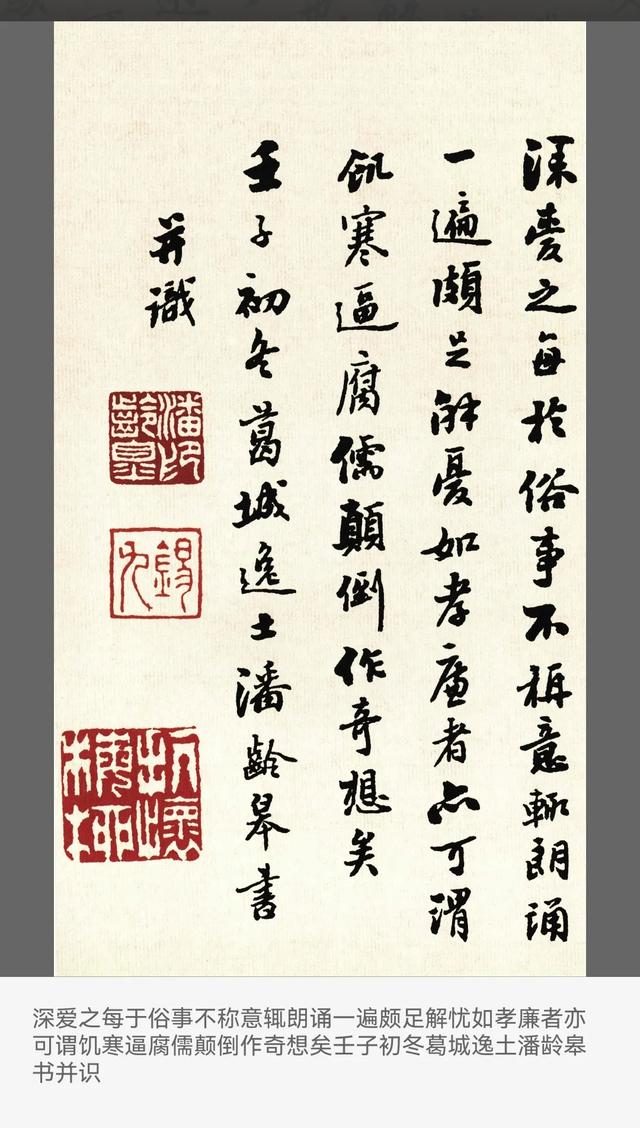 深愛之每於俗事不稱意輒朗誦
一遍頗足解憂如孝廉者亦可謂
飢寒逼腐儒顛倒作奇想矣
壬子初冬葛城逸士潘齡皋書
并識
潘印
齡皋
錫九
深爱之每于俗事不称意辄朗诵一遍颇足解忧如孝廉者亦
可谓饥寒逼腐儒颠倒作奇想矣壬子初冬葛城逸土潘龄皋
书并识